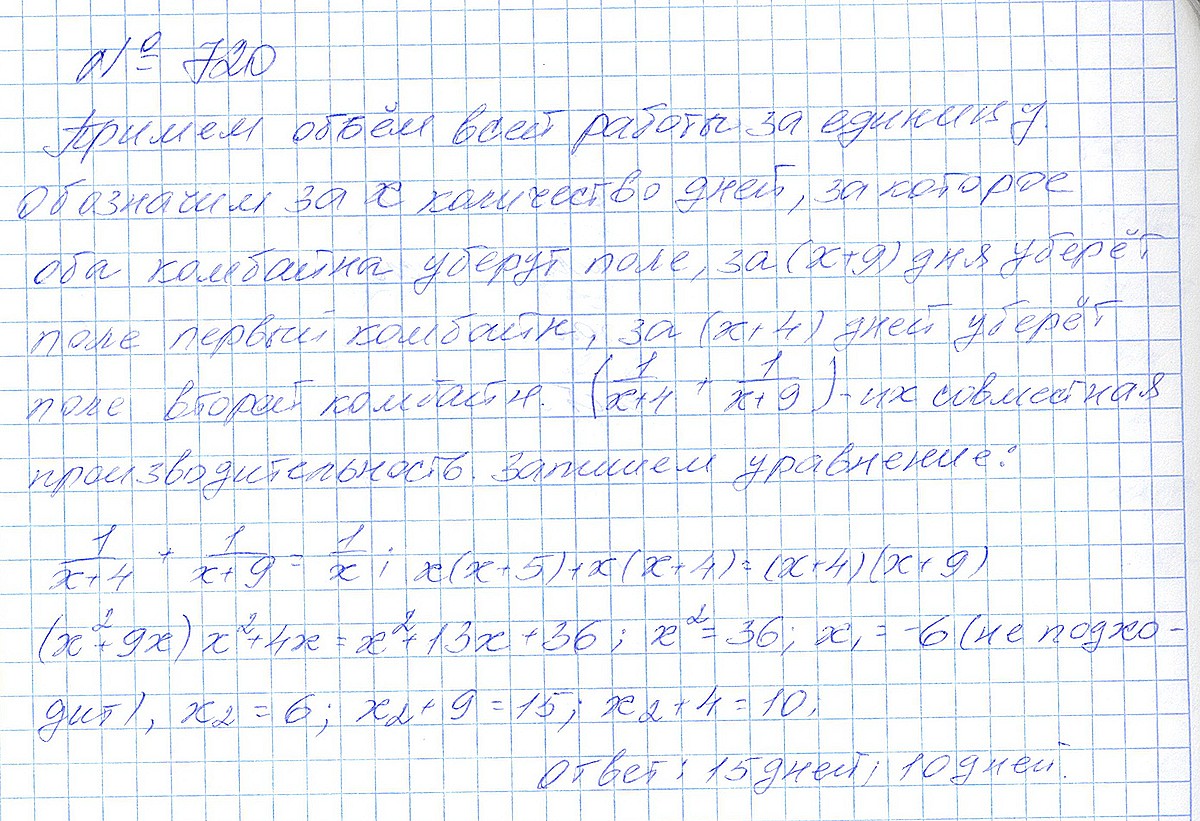 № 720
Примем объём всей работы за единицу.
Обозначим за x количество дней, за которое
оба комбайна уберут поле, за (x+9) дня уберёт
поле первый комбайн, за (x+4) дней уберёт
поле второй комбайн. (1/(x+4) + 1/(x+9)) - их совместная
производительность. Запишем уравнение:
1/(x+4) + 1/(x+9) = 1/x ; x(x+5)+x(x+4)=(x+4)(x+9)
(x²+9x) x²+4x=x²+13x+36; x²=36; x₁=-6 (не подхо-
дит), x₂=6; x₂+9=15; x₂+4=10;
Ответ: 15 дней; 10 дней.